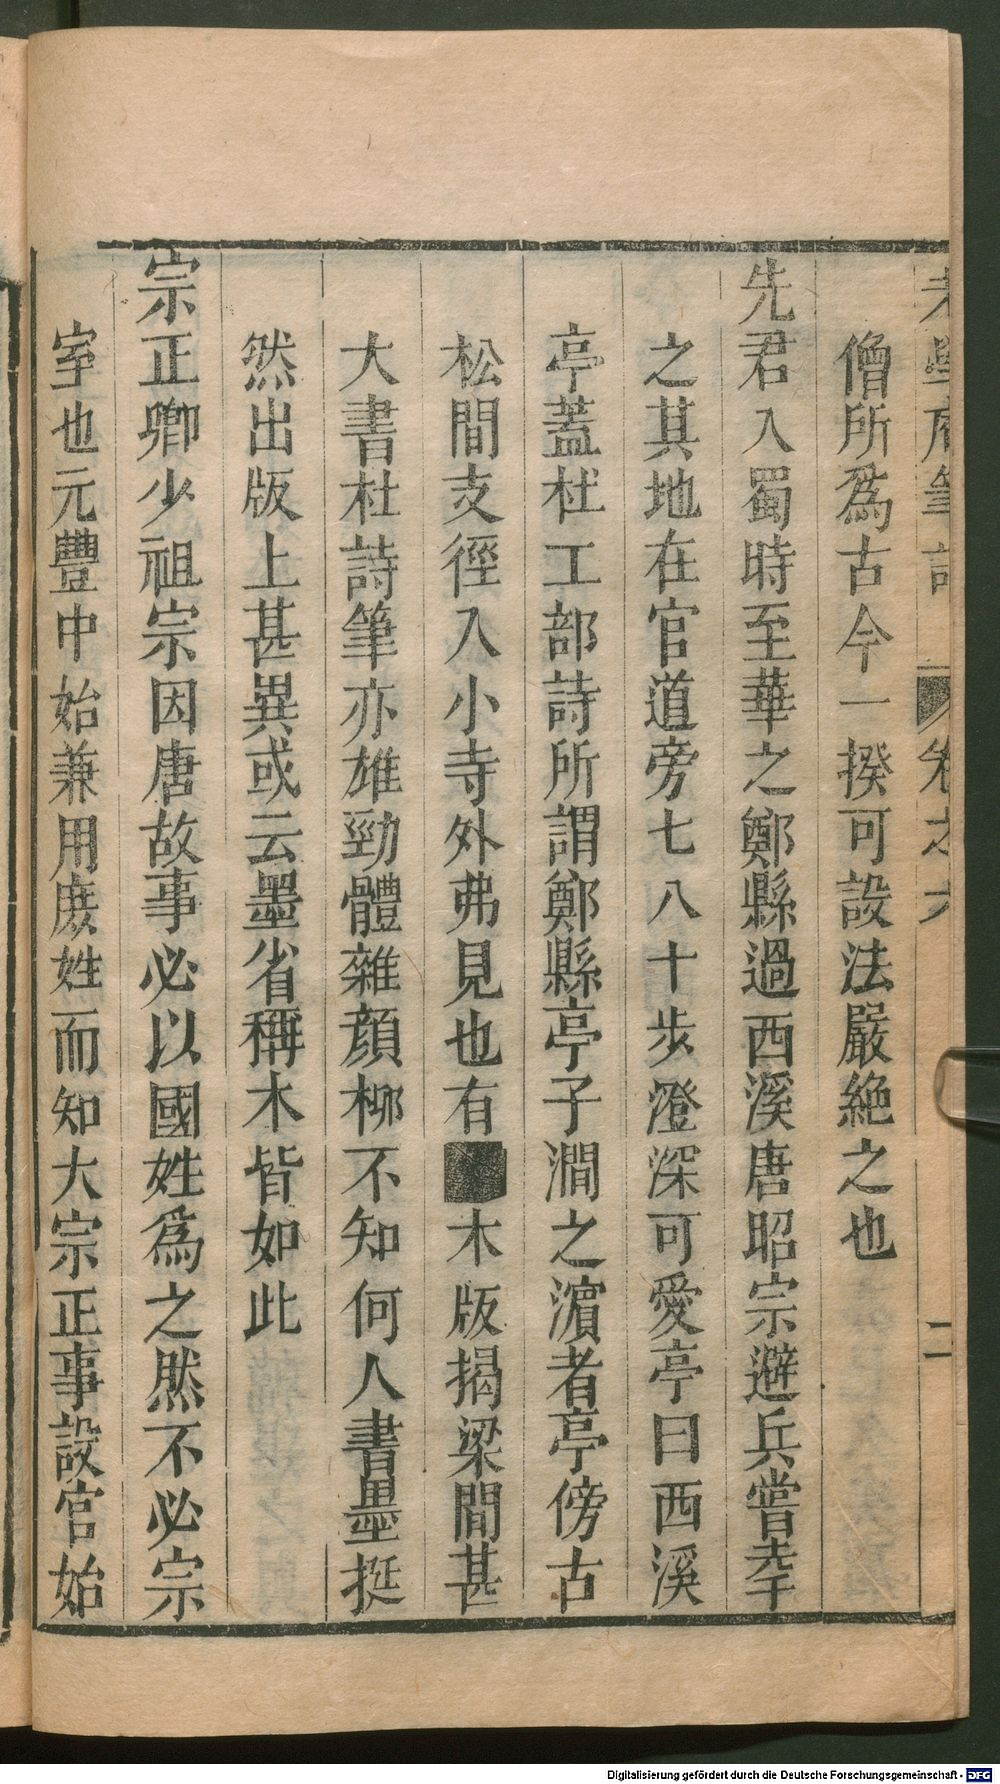 老學庵筆記 卷之六 二
僧所爲古今一揆可設法嚴絶之也
先君入蜀時至華之鄭縣過西溪唐昭宗避兵嘗幸
之其地在官道旁七八十步澄深可愛亭曰西溪
亭蓋杜工部詩所謂鄭縣亭子澗之濵者亭傍古
松間支徑入小寺外弗見也有木版揭梁間甚
大書杜詩筆亦雄勁體雜顔栁不知何人書墨挺
然出版上甚異或云墨省稱木皆如此
宗正卿少祖宗因唐故事必以國姓爲之然不必宗
室也元豐中始兼用庻姓而知大宗正事設官始
Digitalisierung gefördert durch die Deutsche Forschungsgemeinschaft - DFG